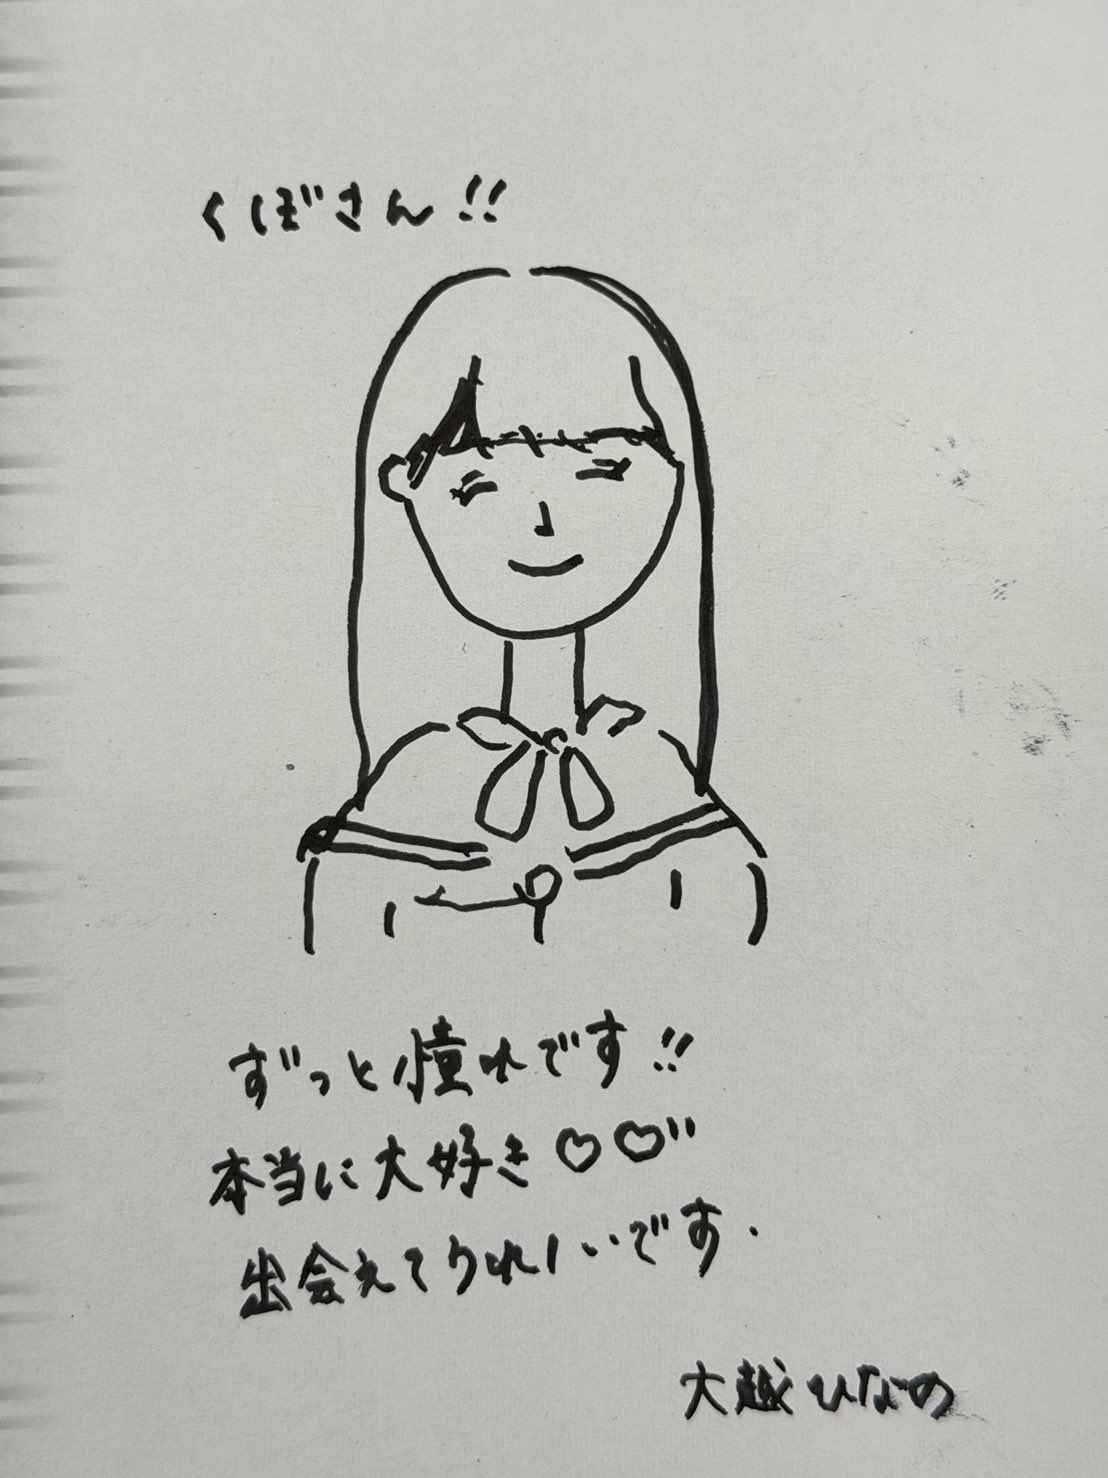 くぼさん!!
ずっと憧れです!!
本当に大好き♡♡"
出会えてうれしいです.
大越ひなの